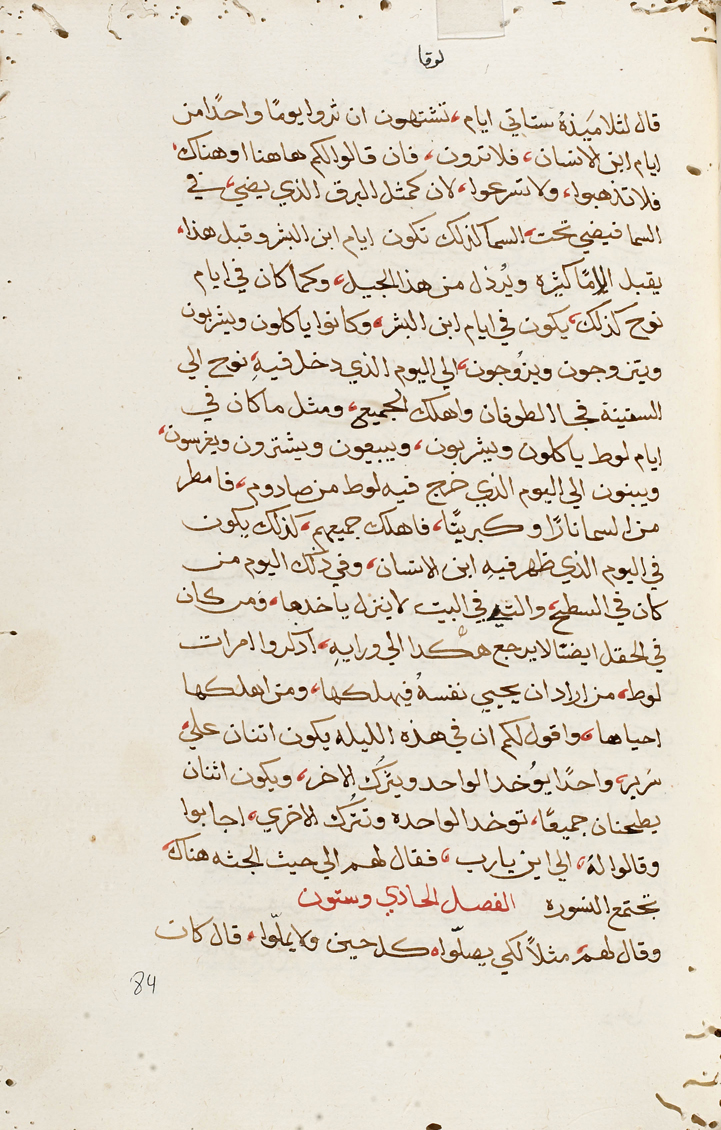 لوقا
قال لتلاميذهُ ستاتي ايام، تشتهون ان تروا يومًا واحدًا من
ايام ابن الانسان، فلا ترون، فان قالوا لكم هاهنا او هناك،
فلا تذهبوا، ولا تسرعوا، لان كمثل البرق الذي يضي، في
السما فيضي تحت، السما كذلك تكون ايام ابن البشر وقبل هذا،
يقبل الامًا كثيره ويُرذل من هذا الجيل، وكما كان في ايام
نوح كذلك، يكون في ايام ابن البشر، وكانوا ياكلون ويشربون
ويتزوجون ويزوجون، الي اليوم الذي دخل فيهِ، نوح الي
السفينة فجا الطوفان واهلك الجميع، ومثل ما كان في
ايام لوط ياكلون ويشربون، ويبيعون ويشترون ويغرسون،
ويبنون الي اليوم الذي خرج فيه لوط من صادوم، فامطر
من السما نارًا وكبريتًا، فاهلك جميعهم، كذلك يكون
في اليوم الذي ظهر فيهِ ابن الانسان، وفي ذلك اليوم من
كان في السطح، والتيه في البيت لا ينزل ياخدها، ومن كان
في الحقل ايضًا لا يرجع هكدا الي ورايهِ، ادكروا امرات
لوط، من اراد ان يحيي نفسهُ فيهلكها، ومن اهلكها
احياها، واقول لكم ان في هذه الليله يكون اتنان علي،
سرير، واحدًا يوُخد الواحد ويترَك الاخر، ويكون اثنان
يطحنان جميعًا، توخد الواحده وتترَك الاخري، اجابوا
وقالوا لهُ، الي اين يارب، فقال لهم الي حيث الجثه هناك،
تجتمع النسوره الفصل الحادي وستون
وقال لهم، مثلاً لكي يصلّوا، كل حين ولا يملّوا، قال كان
84